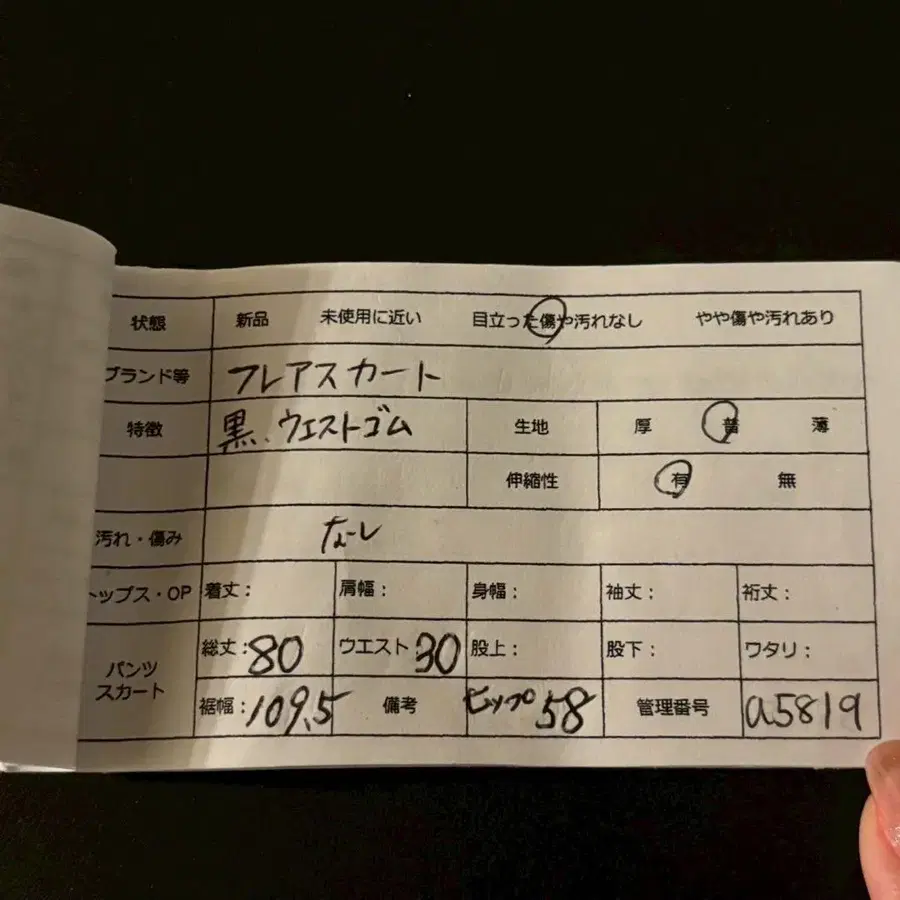 状態 新品 未使用に近い 目立った傷や汚れなし やや傷や汚れあり
ブランド等 フレアスカート
特徴 黒、ウエストゴム 生地 厚 普 薄
伸縮性 有 無
汚れ・傷み なし
トップス・OP 着丈: 肩幅: 身幅: 袖丈: 裄丈:
パンツ スカート 総丈:80 ウエスト 30 股上: 股下: ワタリ:
裾幅:109.5 備考 ヒップ58 管理番号 a5819